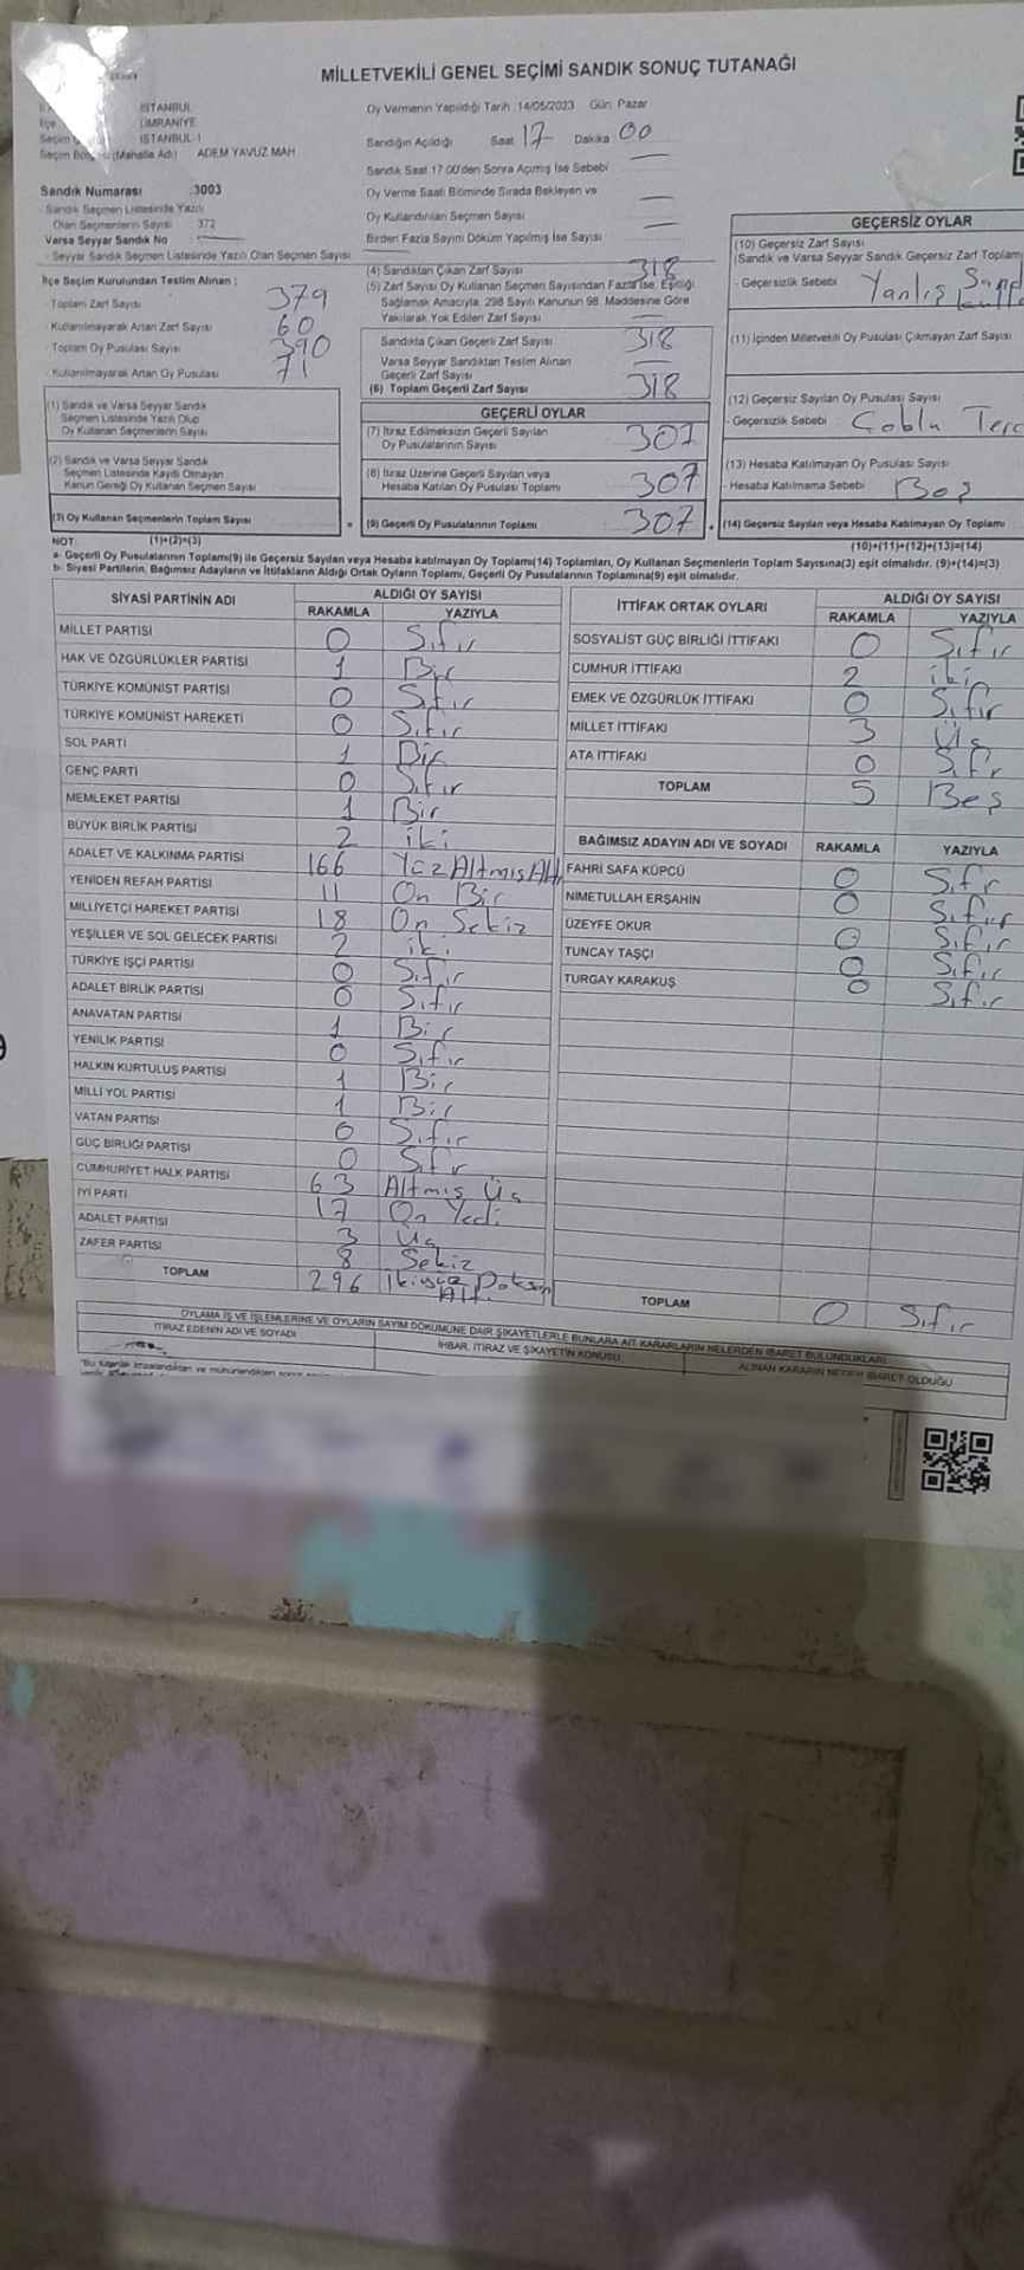 MİLLETVEKİLİ GENEL SEÇİMİ SANDIK SONUÇ TUTANAĞI
İSTANBUL
ÜMRANİYE
İSTANBUL-1
(Mahalle Adı) ADEM YAVUZ MAH
Sandık Numarası :3003
Sandık Seçmen Listesinde Yazılı
Olan Seçmenlerin Sayısı 372
Varsa Seyyar Sandık No
Seyyar Sandık Seçmen Listesinde Yazılı Olan Seçmen Sayısı
İlçe Seçim Kurulundan Teslim Alınan :
- Toplam Zarf Sayısı 379
- Kullanılmayarak Artan Zarf Sayısı 60
- Toplam Oy Pusulası Sayısı 390
- Kullanılmayarak Artan Oy Pusulası 71
(1) Sandık ve Varsa Seyyar Sandık
Seçmen Listesinde Yazılı Olup
Oy Kullanan Seçmenlerin Sayısı
(2) Sandık ve Varsa Seyyar Sandık
Seçmen Listesinde Kayıtlı Olmayan
Kanun Gereği Oy Kullanan Seçmen Sayısı
(3) Oy Kullanan Seçmenlerin Toplam Sayısı
(1)+(2)=(3)
Oy Vermenin Yapıldığı Tarih :14/05/2023 Gün: Pazar
Sandığın Açıldığı Saat 17 Dakika 00
Sandık Saat 17:00'den Sonra Açılmış İse Sebebi —
Oy Verme Saati Bitiminde Sırada Bekleyen ve
Oy Kullandırılan Seçmen Sayısı —
Birden Fazla Sayım Döküm Yapılmış İse Sayısı —
(4) Sandıktan Çıkan Zarf Sayısı 318
(5) Zarf Sayısı Oy Kullanan Seçmen Sayısından Fazla İse, Eşitliği
Sağlamak Amacıyla, 298 Sayılı Kanunun 98. Maddesine Göre
Yakılarak Yok Edilen Zarf Sayısı —
Sandıkta Çıkan Geçerli Zarf Sayısı 318
Varsa Seyyar Sandıktan Teslim Alınan
Geçerli Zarf Sayısı —
(6) Toplam Geçerli Zarf Sayısı 318
GEÇERLİ OYLAR
(7) İtiraz Edilmeksizin Geçerli Sayılan
Oy Pusulalarının Sayısı 307
(8) İtiraz Üzerine Geçerli Sayılan veya
Hesaba Katılan Oy Pusulası Toplamı 307
= (9) Geçerli Oy Pusulalarının Toplamı 307
GEÇERSİZ OYLAR
(10) Geçersiz Zarf Sayısı
(Sandık ve Varsa Seyyar Sandık Geçersiz Zarf Toplamı
- Geçersizlik Sebebi Yanlış
(11) İçinden Milletvekili Oy Pusulası Çıkmayan Zarf Sayısı
(12) Geçersiz Sayılan Oy Pusulası Sayısı
- Geçersizlik Sebebi Çoklu Terc
(13) Hesaba Katılmayan Oy Pusulası Sayısı
- Hesaba Katılmama Sebebi Boş
+ (14) Geçersiz Sayılan veya Hesaba Katılmayan Oy Toplamı
(10)+(11)+(12)+(13)=(14)
NOT
a- Geçerli Oy Pusulalarının Toplamı(9) ile Geçersiz Sayılan veya Hesaba katılmayan Oy Toplamı(14) Toplamları, Oy Kullanan Seçmenlerin Toplam Sayısına(3) eşit olmalıdır. (9)+(14)=(3)
b- Siyasi Partilerin, Bağımsız Adayların ve İttifakların Aldığı Ortak Oyların Toplamı, Geçerli Oy Pusulalarının Toplamına(9) eşit olmalıdır.
SİYASİ PARTİNİN ADI ALDIĞI OY SAYISI
RAKAMLA YAZIYLA
MİLLET PARTİSİ 0 Sıfır
HAK VE ÖZGÜRLÜKLER PARTİSİ 1 Bir
TÜRKİYE KOMÜNİST PARTİSİ 0 Sıfır
TÜRKİYE KOMÜNİST HAREKETİ 0 Sıfır
SOL PARTİ 1 Bir
GENÇ PARTİ 0 Sıfır
MEMLEKET PARTİSİ 1 Bir
BÜYÜK BİRLİK PARTİSİ 2 iki
ADALET VE KALKINMA PARTİSİ 166 Yüz Altmış Altı
YENİDEN REFAH PARTİSİ 11 On Bir
MİLLİYETÇİ HAREKET PARTİSİ 18 On Sekiz
YEŞİLLER VE SOL GELECEK PARTİSİ 2 iki
TÜRKİYE İŞÇİ PARTİSİ 0 Sıfır
ADALET BİRLİK PARTİSİ 0 Sıfır
ANAVATAN PARTİSİ 1 Bir
YENİLİK PARTİSİ 0 Sıfır
HALKIN KURTULUŞ PARTİSİ 1 Bir
MİLLİ YOL PARTİSİ 1 Bir
VATAN PARTİSİ 0 Sıfır
GÜÇ BİRLİĞİ PARTİSİ 0 Sıfır
CUMHURİYET HALK PARTİSİ 63 Altmış Üç
İYİ PARTİ 17 On Yedi
ADALET PARTİSİ 3 Üç
ZAFER PARTİSİ 8 Sekiz
TOPLAM 296 İkiyüz Doksan
Altı
İTTİFAK ORTAK OYLARI ALDIĞI OY SAYISI
RAKAMLA YAZIYLA
SOSYALİST GÜÇ BİRLİĞİ İTTİFAKI 0 Sıfır
CUMHUR İTTİFAKI 2 iki
EMEK VE ÖZGÜRLÜK İTTİFAKI 0 Sıfır
MİLLET İTTİFAKI 3 Üç
ATA İTTİFAKI 0 Sıfır
TOPLAM 5 Beş
BAĞIMSIZ ADAYIN ADI VE SOYADI RAKAMLA YAZIYLA
FAHRİ SAFA KÜPCÜ 0 Sıfır
NİMETULLAH ERŞAHİN 0 Sıfır
ÜZEYFE OKUR 0 Sıfır
TUNCAY TAŞÇI 0 Sıfır
TURGAY KARAKUŞ 0 Sıfır
TOPLAM 0 Sıfır
OYLAMA İŞ VE İŞLEMLERİNE VE OYLARIN SAYIM DÖKÜMÜNE DAİR ŞİKAYETLERLE BUNLARA AİT KARARLARIN NELERDEN İBARET BULUNDUKLARI
İTİRAZ EDENİN ADI VE SOYADI İHBAR, İTİRAZ VE ŞİKAYETİN KONUSU ALINAN KARARIN NEDEN İBARET OLDUĞU